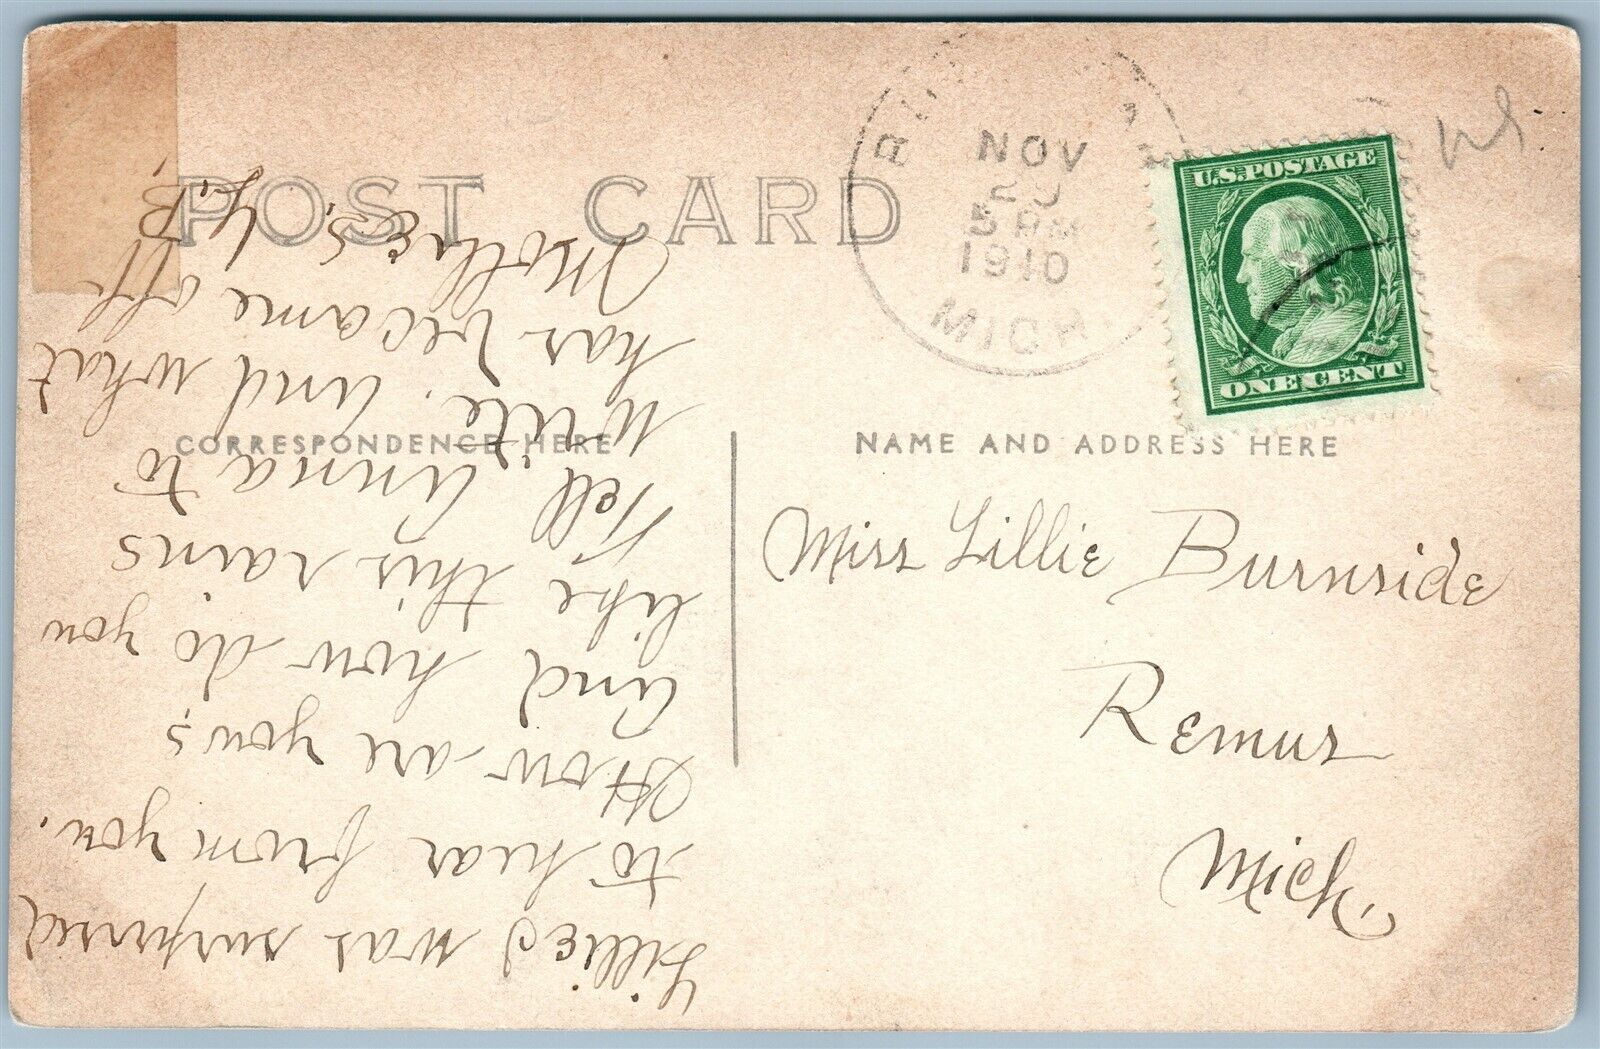 POST CARD
NOV
5 AM
1910
MICH.
U.S. POSTAGE
ONE CENT
CORRESPONDENCE HERE
NAME AND ADDRESS HERE
Miss Lillie Burnside
Remus
Mich
Lillie I was surprised
to hear from you.
How are you,
and how do you
like this rains
Tell Anna to
write. And what
has became off
L. B.